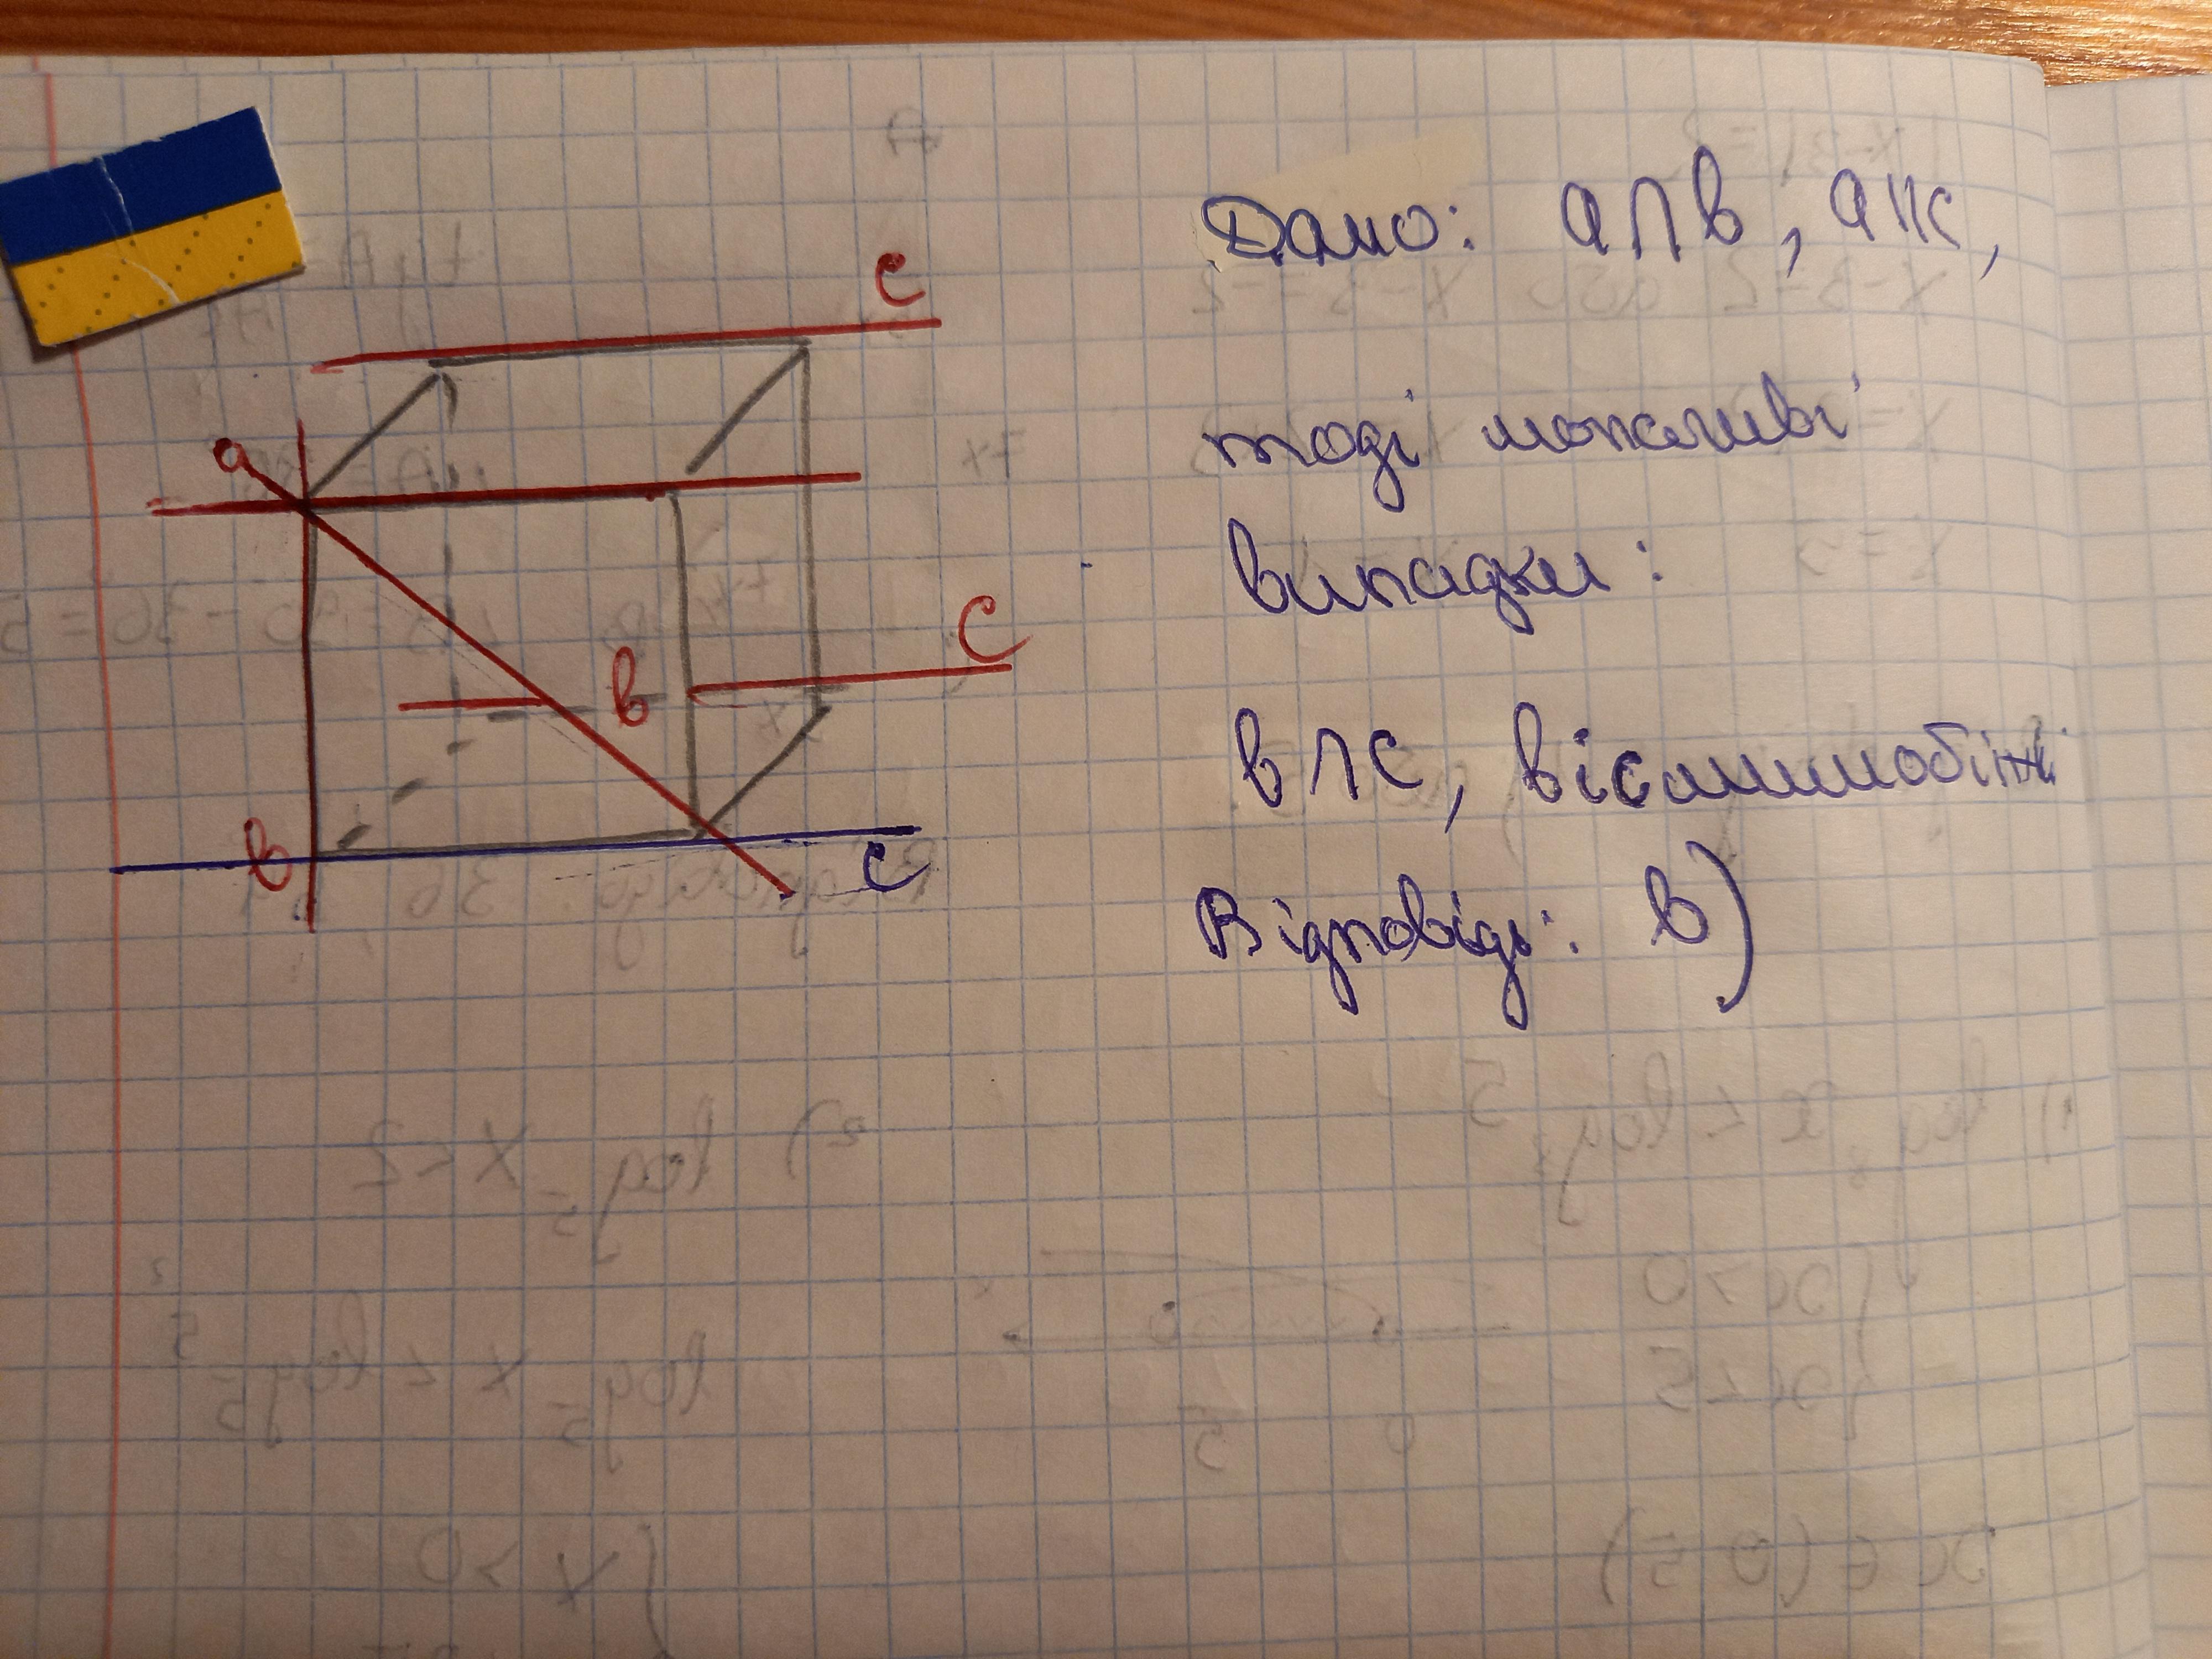 c
a
c
в
в
c
Дано: a∩в, a||c,
тоді можливі
випадки:
в∩c, в і c мимобіжні
Відповідь: в)